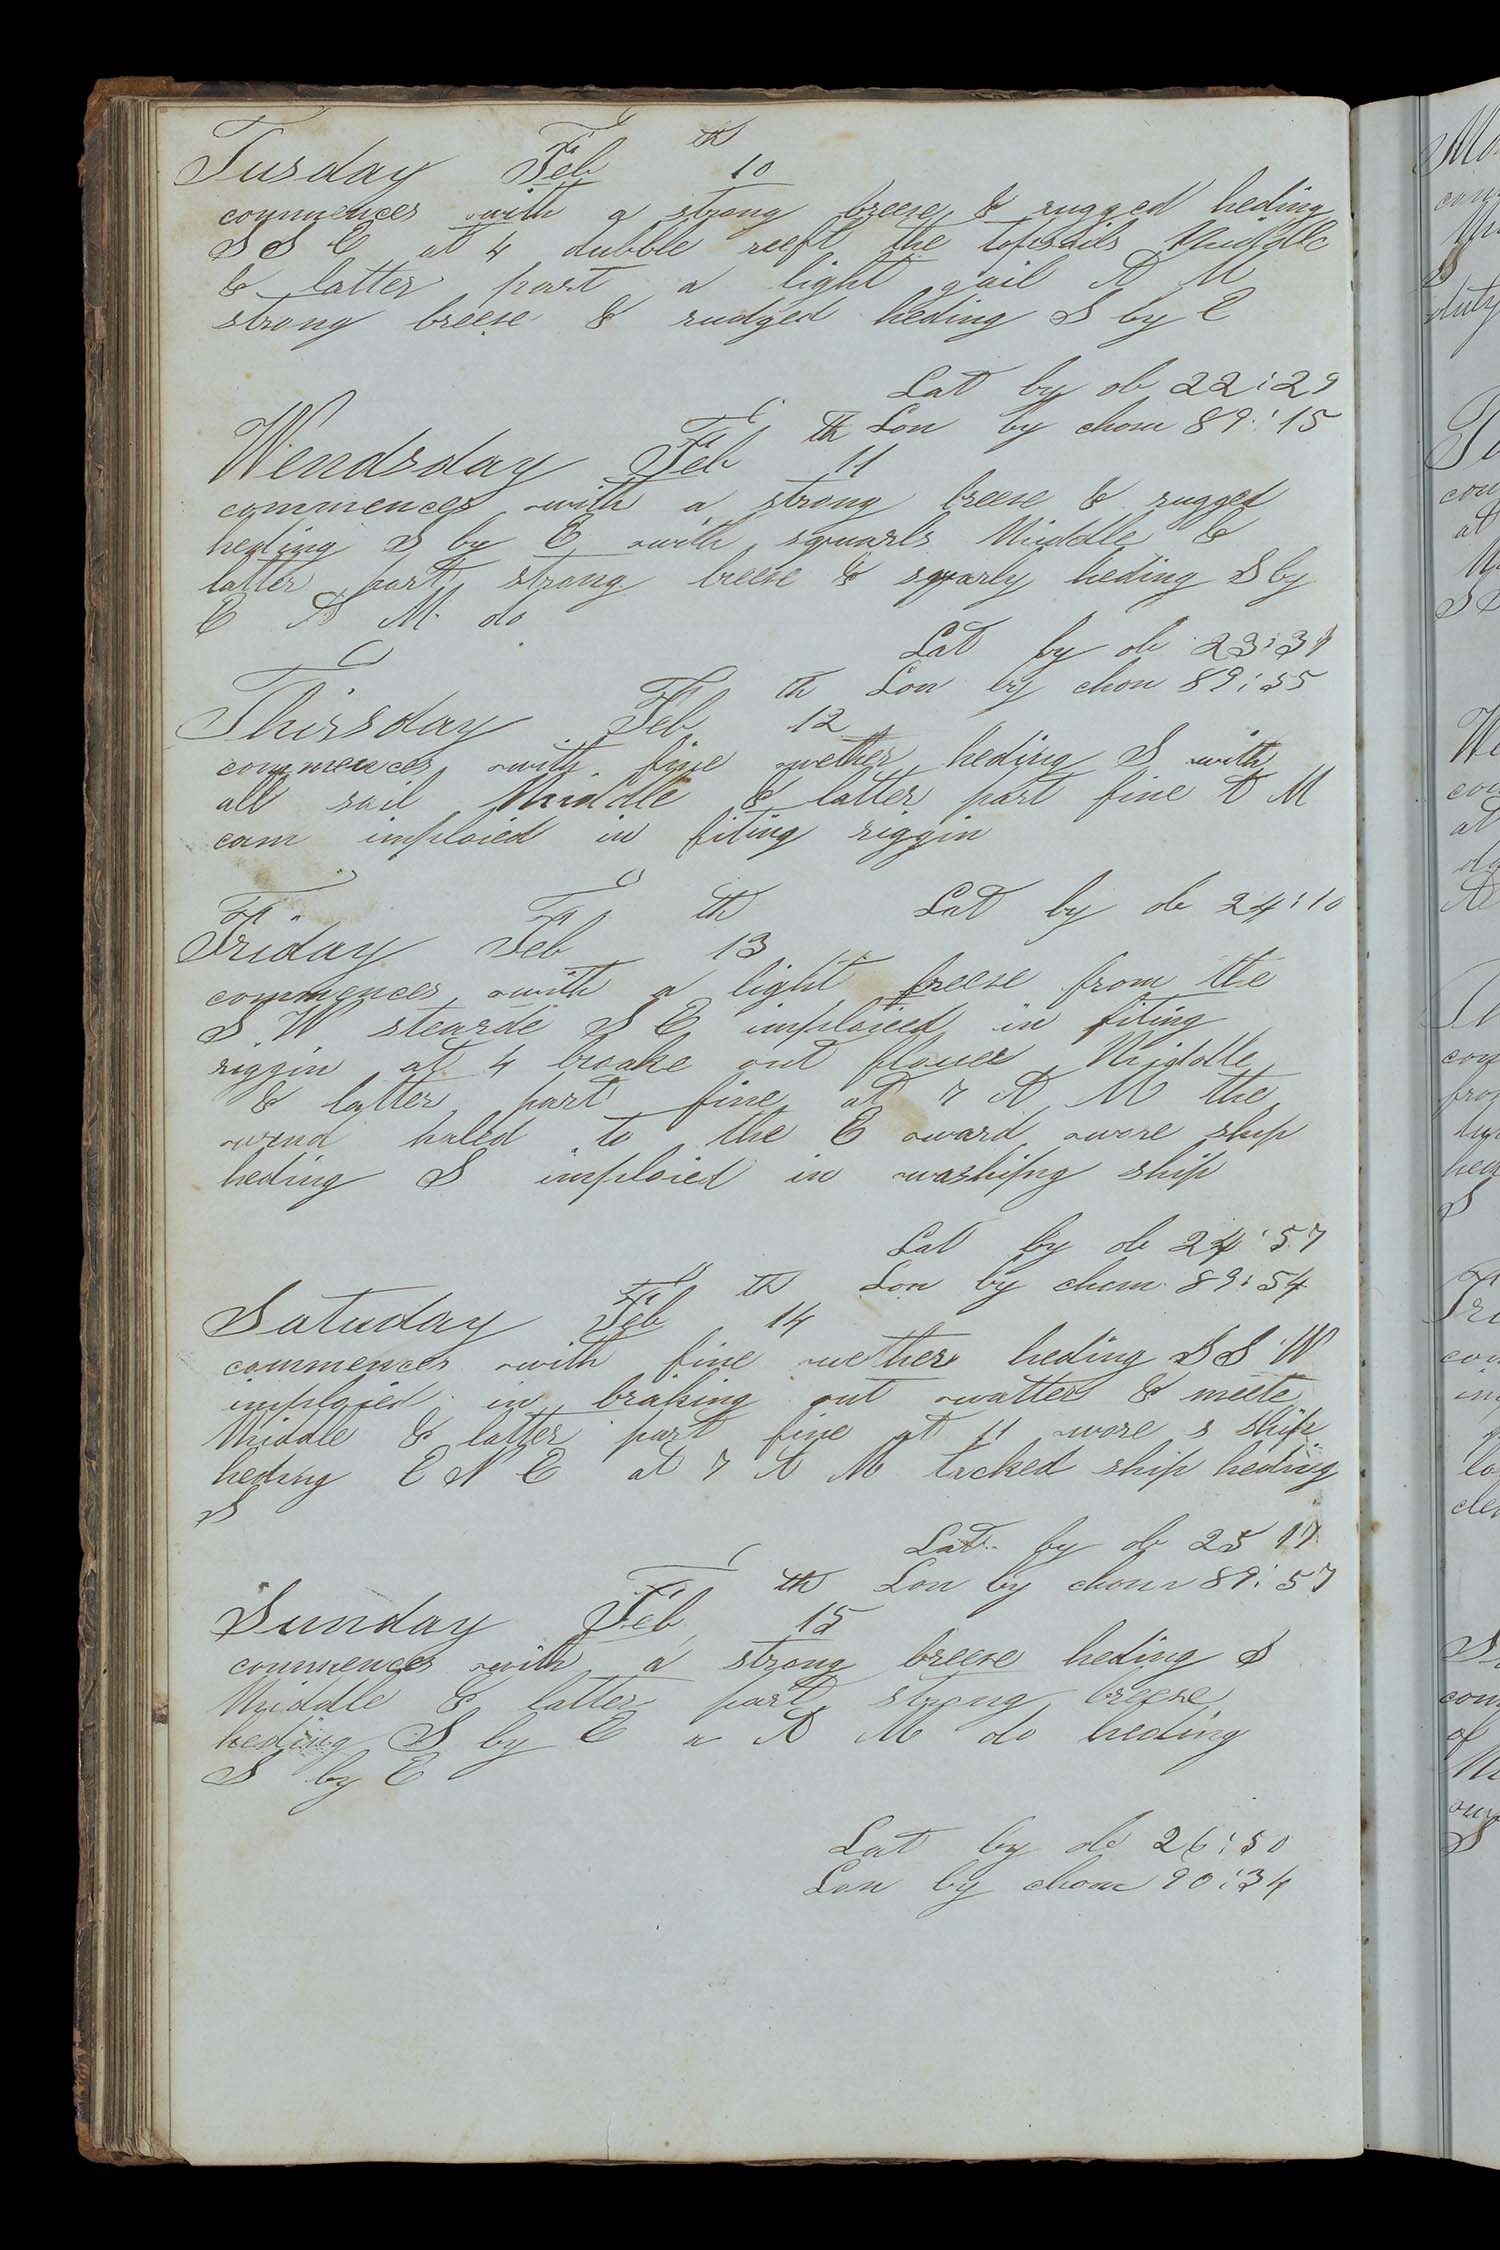 Tusday Feb 10th
commences with a strong breese & rugged heding
S S E at 4 dubble reeft the topsails Middle
& latter part a light gail A M
strong breese & rudged heding S by E
Lat by ob 22:29
Lon by chom 89:15
Wendsday Feb 11th
commences with a strong breese & rugged
heding S by E with squarls Middle &
latter part strong breese & sqarly heding S by
E A M do
Lat by ob 23:31
Lon by chon 89:55
Thirsday Feb 12th
commences with fine wether heding S with
all sail Middle & latter part fine A M
cam imploied in fiting riggin
Lat by ob 24:10
Friday Feb 13th
commences with a light breese from the
S. W steard S E imploied in fiting
riggin at 4 broake out flouer Middle
& latter part fine at 7 A M the
wend haled to the E ward wore ship
heding S imploied in washing ship
Lat by ob 24:57
Lon by chom 89:54
Satuday Feb 14th
commences with fine wether heding S S W
imploied in braking out watter & meete
Middle & latter part fine at 11 wore s ship
heding E N E at 7 A M tacked ship heding
S
Lat by ob 25 17
Lon by chom 89:57
Sunday Feb 15th
commences with a strong breese heding S
Middle & latter part strong breese
heding S by E a A M do heding
S by E
Lat by ob 26:50
Lon by chom 90:34